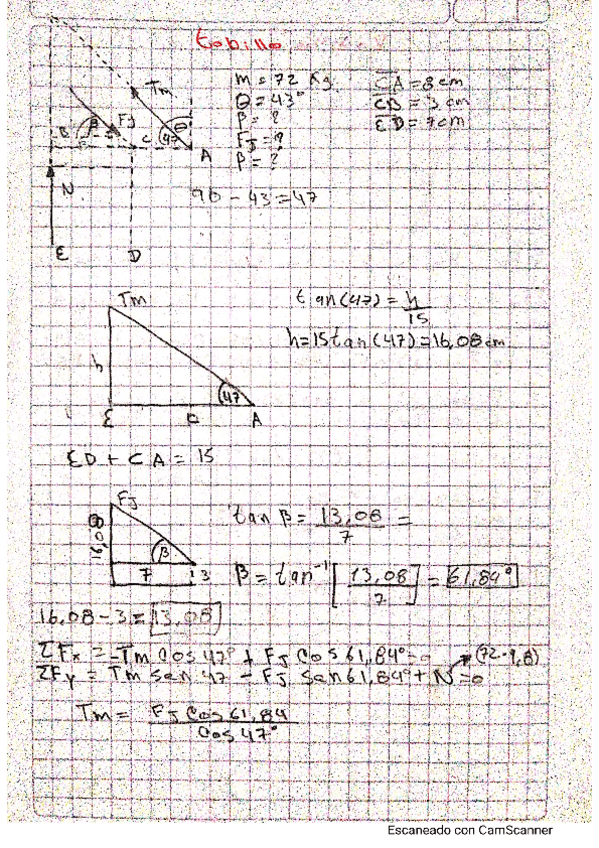 tobillo
m = 72 Kg.
θ = 43°
β = ?
FJ = ?
β = ?
CA = 8 cm
CB = 3 cm
ED = 7 cm
Tm
FJ
B
β
C
47
θ
A
N
E
D
90 - 43 = 47
Tm
h
47
E
A
tan(47) = h/15
h = 15 tan(47) = 16,08 cm
ED + CA = 15
FJ
16,08
β
7
3
tan β = 13,08/7 =
β = tan⁻¹[13,08/7] = 61,84°
16,08 - 3 = 13,08
ΣFx = -Tm Cos 47° + FJ Cos 61,84° = 0
(72·9,8)
ΣFy = Tm San 47 - FJ San 61,84° + N = 0
Tm = FJ Cos 61,84 / Cos 47°
Escaneado con CamScanner